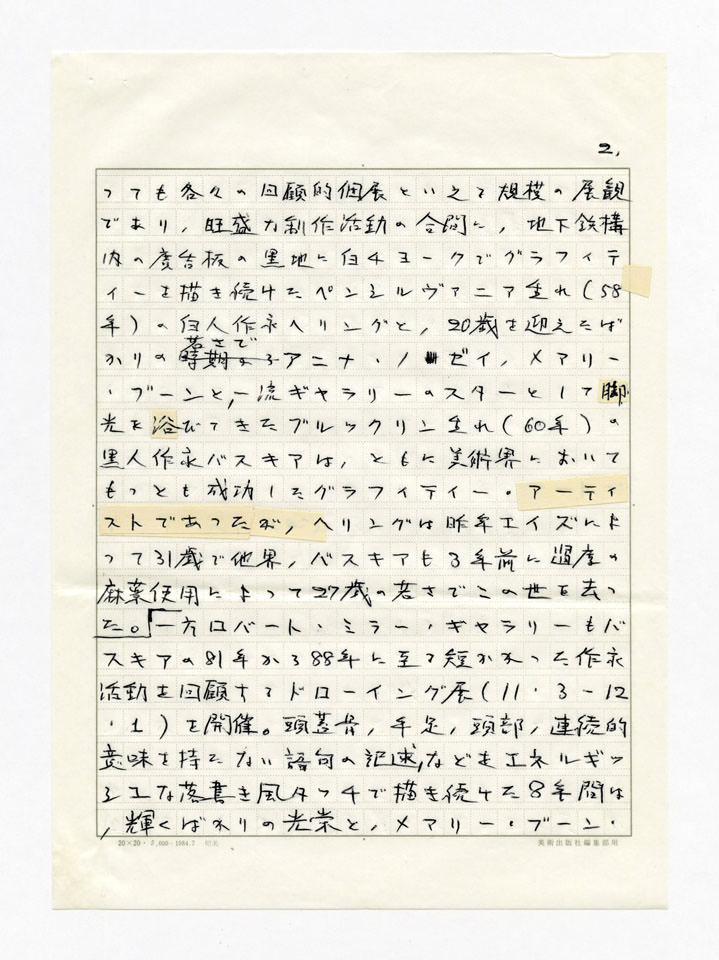 2,
っても各々の回顧的個展といえて規模の展観
であり，旺盛な制作活動の合間に，地下鉄構
内の広告板の黒地に白チョークでグラフィテ
ィーを描き続けたペンシルヴァニア生れ（58
年）の白人作家ヘリングと，20歳を迎えたば
若さで
かりの時期からアニナ・ノゼイ，メアリー
・ブーンと，一流ギャラリーのスターとして脚
光を浴びてきたブルックリン生れ（60年）の
黒人作家バスキアは，ともに美術界において
もっとも成功したグラフィティー・アーティ
ストであったが，ヘリングは昨年エイズによ
って31歳で他界，バスキアも3年前に過度の
麻薬使用によって27歳の若さでこの世を去っ
た。一方ロバート・ミラー・ギャラリーもバ
スキアの81年から88年に至る短かかった作家
活動を回顧するドローイング展（11・3－12
・1）を開催。頭蓋骨，手足，頭部，連続的
意味を持たない語句の記述，などをエネルギッ
シュな落書き風タッチで描き続けた8年間は
，輝くばかりの光栄と，メアリー・ブーン・
20×20・ 1984.7
美術出版社編集部用